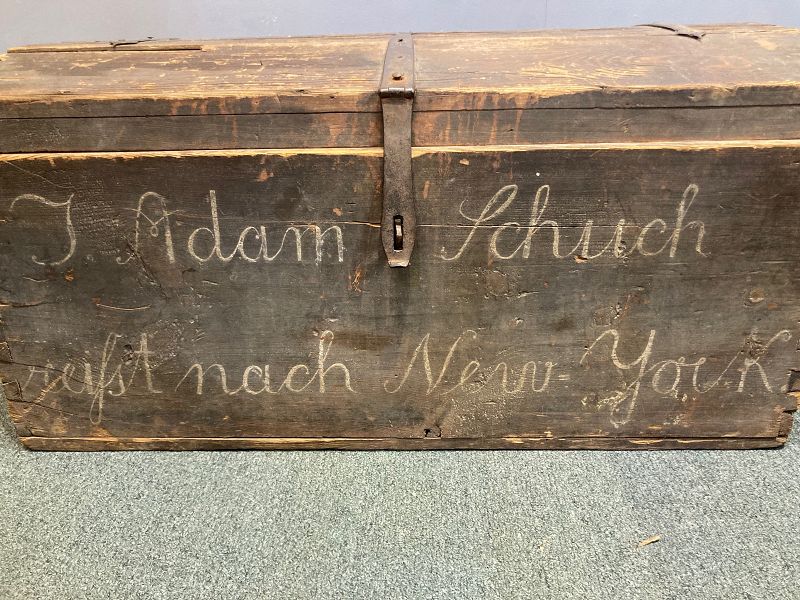 J. Adam Schuch
reiſt nach New-York.